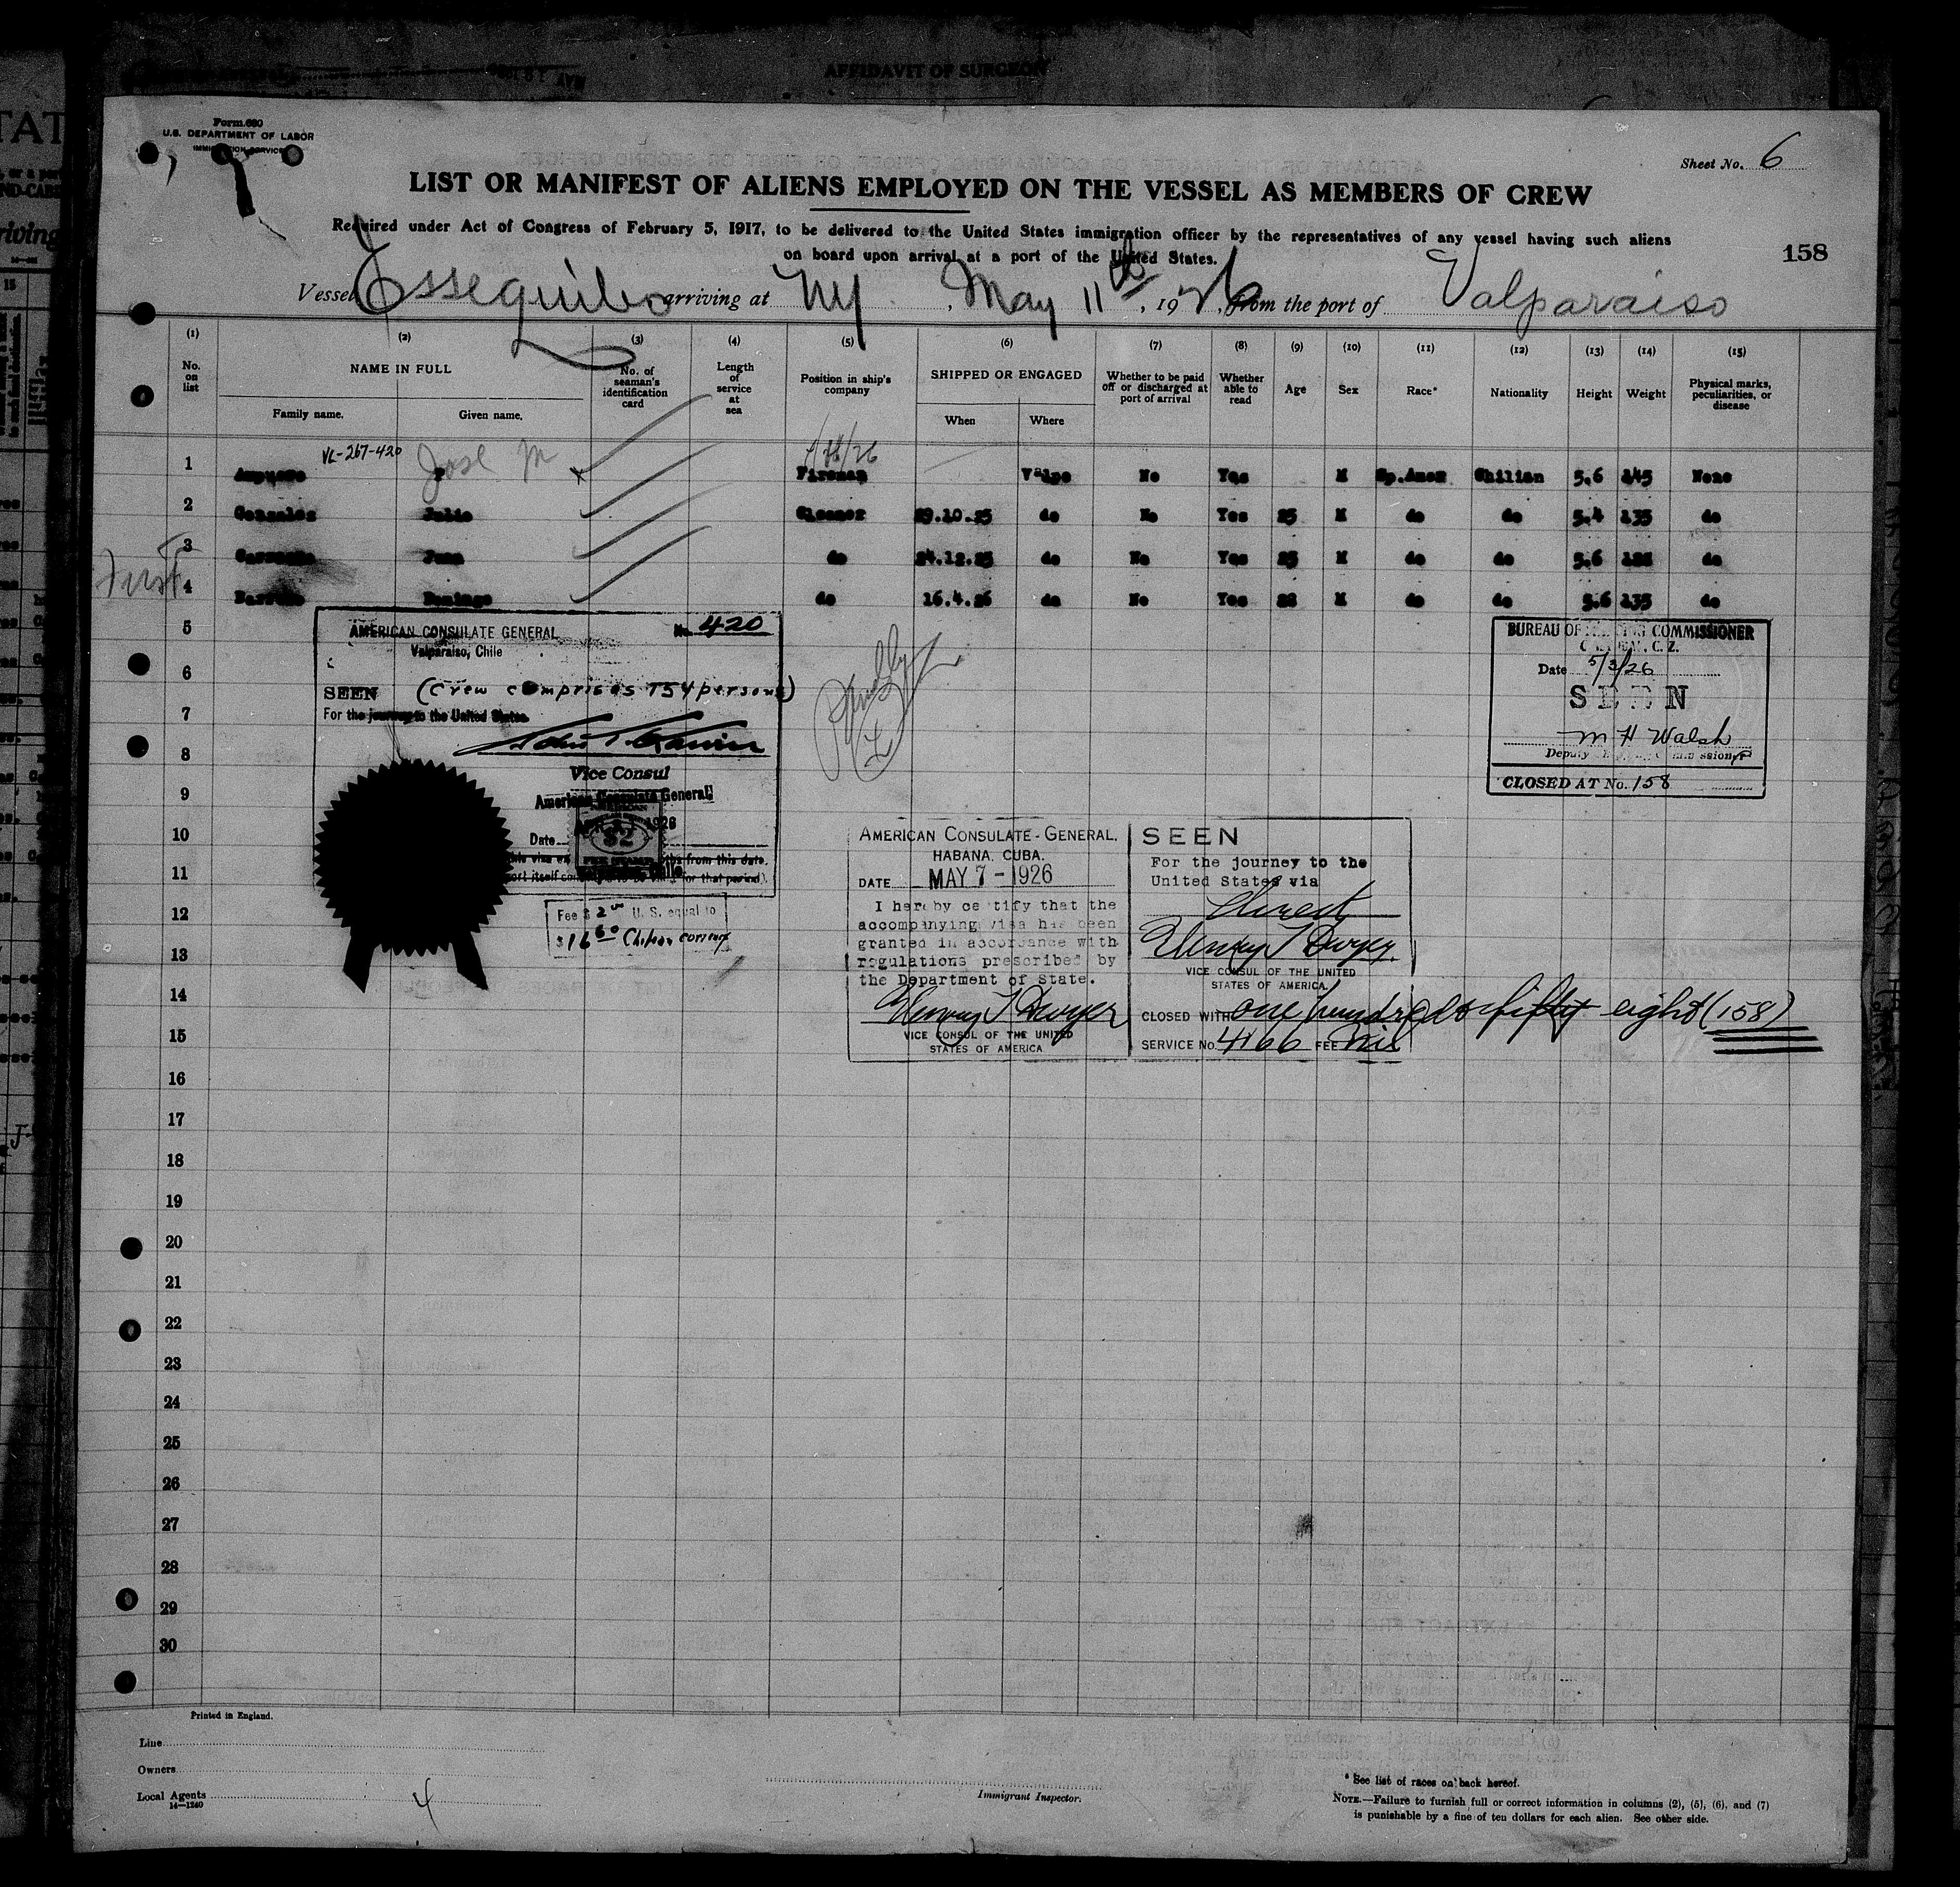 AFFIDAVIT OF SURGEON
Form 680
U.S. DEPARTMENT OF LABOR
IMMIGRATION SERVICE
Sheet No. 6
LIST OR MANIFEST OF ALIENS EMPLOYED ON THE VESSEL AS MEMBERS OF CREW
Required under Act of Congress of February 5, 1917, to be delivered to the United States immigration officer by the representatives of any vessel having such aliens
on board upon arrival at a port of the United States.
158
Vessel Essequibo arriving at NY, May 11th, 1926, from the port of Valparaiso
(1) (2) (3) (4) (5) (6) (7) (8) (9) (10) (11) (12) (13) (14) (15)
No. on list NAME IN FULL Family name. Given name. No. of seaman's identification card Length of service at sea Position in ship's company SHIPPED OR ENGAGED When Where Whether to be paid off or discharged at port of arrival Whether able to read Age Sex Race* Nationality Height Weight Physical marks, peculiarities, or disease
VL-267-420
1 Ampuero Jose M Fireman Valpo No Yes M Sp.Amer Chilian 5.6 145 None
2 Gonzalez Julio Cleaner 29.10.25 do No Yes 25 M do do 5.4 135 do
3 Juan do 24.12.25 do No Yes 25 M do do 5.6 do
First
4 Domingo do 16.4.26 do No Yes M do do 5.6 135 do
5
6
7
8
9
10
11
12
13
14
15
16
17
18
19
20
21
22
23
24
25
26
27
28
29
30
AMERICAN CONSULATE GENERAL No. 420
Valparaiso, Chile
SEEN (Crew comprises 154 persons)
For the journey to the United States
Vice Consul
American Consulate General
Date 1926
$2
from this date.
for that period).
Fee $ 2.00 U. S. equal to
$16.60 Chilean currency
BUREAU OF SHIPPING COMMISSIONER
C. Z.
Date 5/3/26
SEEN
M H Walsh
Deputy Shipping Commissioner
CLOSED AT No. 158
AMERICAN CONSULATE-GENERAL,
HABANA, CUBA.
DATE MAY 7-1926
I hereby certify that the
accompanying visa has been
granted in accordance with
regulations prescribed by
the Department of State.
Henry T Dwyer
VICE CONSUL OF THE UNITED
STATES OF AMERICA
SEEN
For the journey to the
United States via
Direct
Henry T Dwyer.
VICE CONSUL OF THE UNITED
STATES OF AMERICA.
CLOSED WITH one hundred & fifty eight (158)
SERVICE No. 4166 FEE nil
Printed in England.
Line
Owners
Local Agents
14—1240
4
Immigrant Inspector.
* See list of races on back hereof.
NOTE.—Failure to furnish full or correct information in columns (2), (5), (6), and (7)
is punishable by a fine of ten dollars for each alien. See other side.